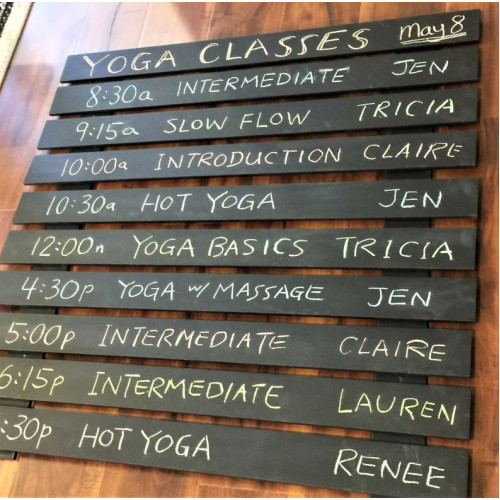 YOGA CLASSES May 8
8:30a INTERMEDIATE JEN
9:15a SLOW FLOW TRICIA
10:00a INTRODUCTION CLAIRE
10:30a HOT YOGA JEN
12:00n YOGA BASICS TRICIA
4:30p YOGA w/ MASSAGE JEN
5:00p INTERMEDIATE CLAIRE
6:15p INTERMEDIATE LAUREN
:30p HOT YOGA RENEE